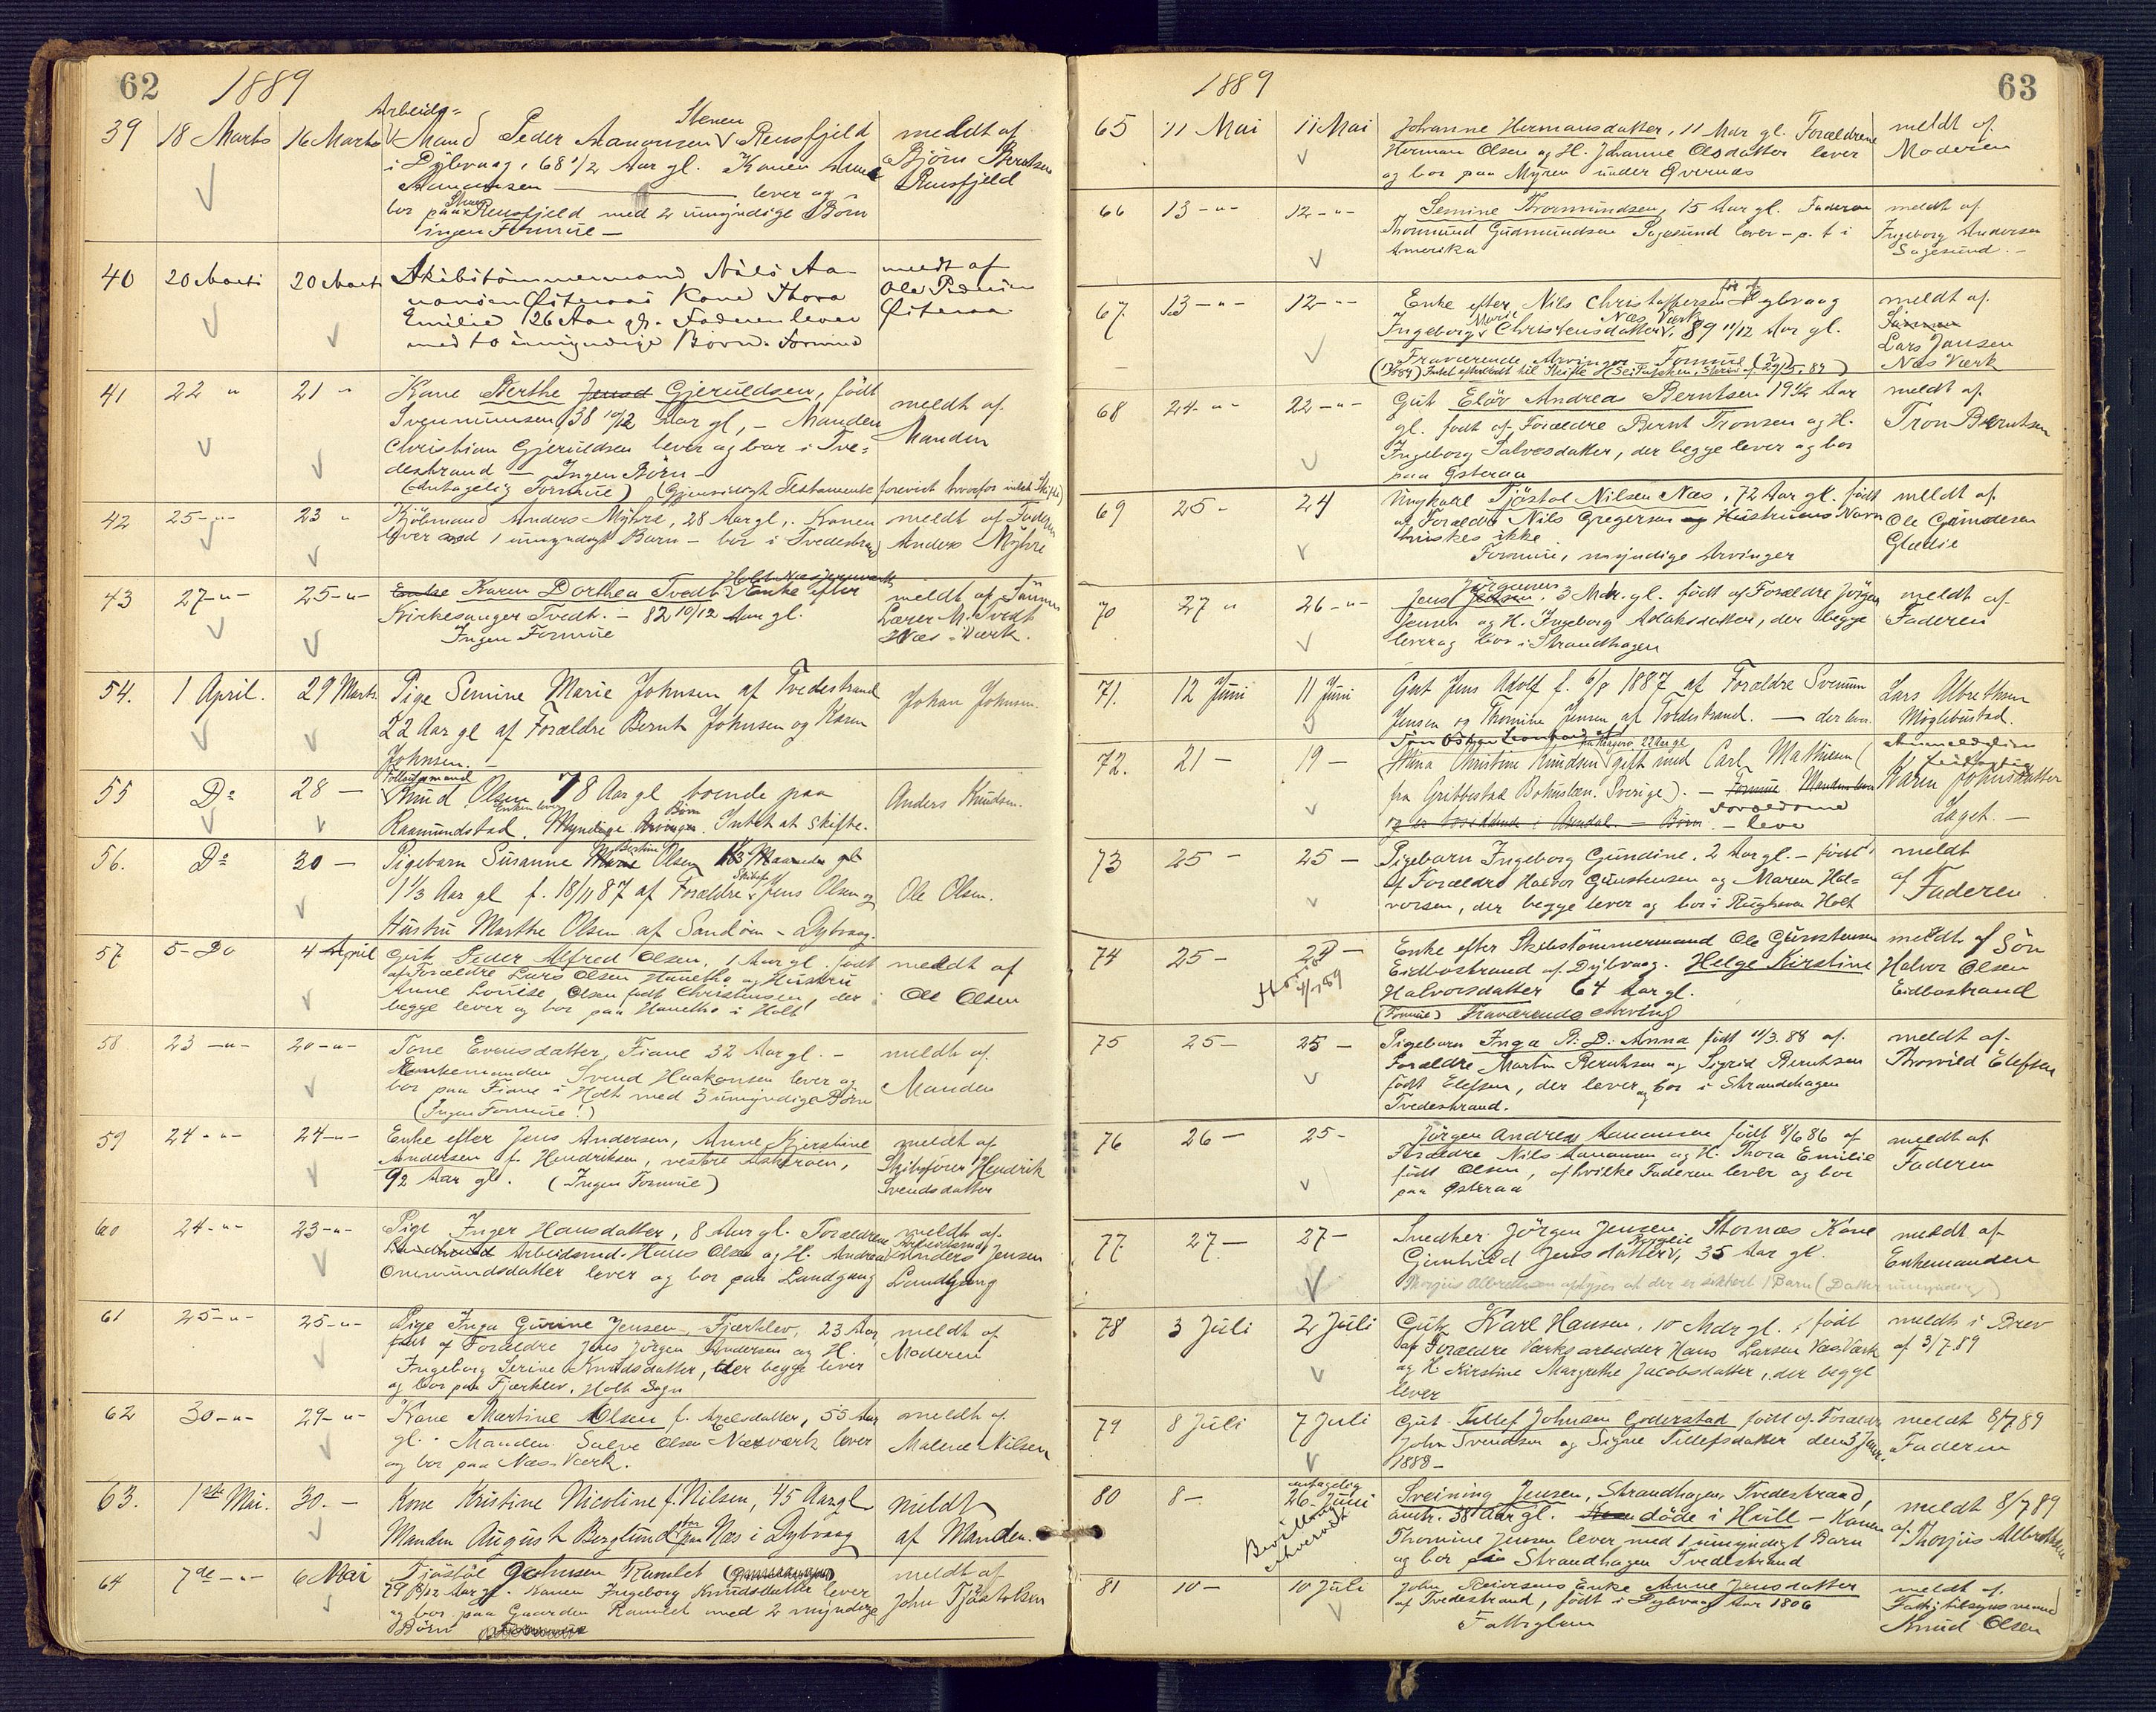 62
1889
39 18 Marts 16 Marts Arbeids=
Mand Peder Aanonsen Stenen Rensfjeld
i Dybvaag, 68 1/2 Aar gl. Konen Anne
Aanonsen lever og
bor paa Rensfjeld med 2 umyndige Børn
ingen Formue —
meldt af
Bjørn Berntsen
Rensfjeld
40 20 Marts 20 Marts Skibstømmermand Nils Aa-
nonsen Østeraas Kone Thora
Emilie 26 Aar gl. Faderen lever
med to umyndige Børn. Formue
meldt af
Ole Pedersen
Østeraa
41 22 " 21 " Kone Berthe Gjeruldsen, født
Svenumsen, 38 10/12 Aar gl, — Manden
Christian Gjeruldsen lever og bor i Tve=
destrand — Ingen Børn —
(Antagelig Formue) (Gjensidigt Testamente forevist hvorfor intet Skifte)
meldt af
Manden
42 25 -"- 23 " Kjøbmand Anders Myhre, 28 Aar gl,. Konen
lever med 1 umyndigt Barn — bor i Tvedestrand
meldt af Faderen
Anders Myhre
43 27 -"- 25 -"- Enke Karen Dorthea Tvedt Enke efter
Kirkesanger Tvedt. — 82 10/12 Aar gl.
Ingen Formue
meldt af Sønnen
Lærer M. Tvedt
Næs Værk.
54. 1 April. 29 Marts Pige Semine Marie Johnsen af Tvedestrand
22 Aar gl af Forældre Bernt Johnsen og Karen
Johnsen. —
Johan Johnsen.
55 Do 28 — Knud Olsen 78 Aar gl boende paa
Enken lever Børn
Raamundstad. Myndige Arvinger. Intet at skifte.
Anders Knudsen.
56. Do 30 — Pigebarn Susanne Bertine Olsen
1 1/3 Aar gl f. 18/11 87 af Forældre Jens Olsen og
Hustru Marthe Olsen af Sandøen — Dybvaag.
Ole Olsen.
57 5 - Do 4 April Gut Peder Alfred Olsen, 1 Aar gl. født
af Forældre Lars Olsen Hanetho og Hustru
Anne Louise Olsen født Christensen, der
begge lever og bor paa Hanetho i Holt
meldt af
Ole Olsen
58 23 -"- 20 -"- Tone Evensdatter, Fiane 32 Aar gl. —
Enkemanden Svend Haakonsen lever og
bor paa Fiane i Holt med 3 umyndige Børn
(Ingen Formue!)
meldt af
Manden
59 24 -"- 24 -"- Enke efter Jens Andersen, Anne Kirstine
Andersen f. Hendriksen, vestre Askerøen,
92 Aar gl. (Ingen Formue)
meldt af
Skibsfører Hendrik
Svendsdatter
60 24 -"- 23 -"- Pige Inger Hansdatter, 8 Aar gl. Forældrene
Arbeidsmd. Hans Olsen og H. Andrea
Ommundsdatter lever og bor paa Landgang
meldt af
Arbeidsmd
Anders Jensen
Landgang
61 25 -"- 25 -"- Pige Inga Gurine Jensen, Fjærklev, 23 Aar,
født af Forældre Jens Jørgen Andersen og H.
Ingeborg Serine Knudsdatter, der begge lever
og bor paa Fjærklev, Holt Sogn
meldt af
Moderen
62 30 -"- 29 -"- Kone Martine Olsen f. Axelsdatter, 55 Aar
gl. Manden Salve Olsen Næsværk lever
og bor paa Næs-Værk.
meldt af
Malene Nilsen
63. 1ste Mai. 30. — Kone Kristine Nicoline f. Nilsen, 45 Aar gl
Manden August Berglund paa Næs i Dybvaag
meldt
af Manden.
64 7de -"- 6 Mai Tjøstøl Johnsen Ramlet
79 8/12 Aar gl. Konen Ingeborg Knudsdatter lever
og bor paa Gaarden Ramlet med 2 myndige
Børn
meldt af
John Tjøstolsen
1889
63
65 11 Mai 11 Mai Johanne Hermansdatter, 11 Mdr gl. Forældrene
Herman Olsen og H. Johanne Olsdatter lever
og bor paa Myren under Qvernes
meldt af
Moderen
66 13 -"- 12 -"- Semine Thormundsen, 15 Aar gl. Faderen
Thormund Gudmundsen Sagesund lever — p. t. i
Amerika
meldt af
Ingeborg Andersen
Sagesund. —
67. 13 -"- 12 -"- Enke efter Nils Christoffersen Dybvaag
Marie Næs Værk
Ingeborg Christensdatter, 89 11/12 Aar gl.
Fraværende Arvinger — Formue (?)
meldt af
Lars Jansen
Næs Værk
68 24 -"- 22 -"- Gut Elöv Andreas Berntsen 19 1/2 Aar
gl. født af Forældre Bernt Tronsen og H.
Ingeborg Salvesdatter, der begge lever og bor
paa Østeraa
meldt af
Tron Berntsen
69 25 - 24 Ungkarl Tjøstol Nilsen Næs, 72 Aar gl. født
af Forældre Nils Gregersen og Hustruens Navn
huskes ikke
Formue, myndige Arvinger
meldt af
Ole Gundersen
Glædie
70 27 " 26 -"- Jens Jørgensen, 3 Mdr. gl. født af Forældre Jörgen
Jensen og H. Ingeborg Adolfsdatter, der begge
lever og bor i Strandhagen
meldt af
Faderen
71. 12 Juni 11 Juni Gut Jens Adolf f. 6/8 1887 af Forældre Svenum
Jensen og Thomine Jensen af Tvedestrand. — der lever.
Lars Albrethsen
Møglebustad.
72. 21 — 19 — Stina Christine Knudsen gift med Carl Mathiesen (
fra Gribbestad Bohuslæn. Sverige). — Formue Manden lever
og er bosiddende i Arendal. — Børn. Forældrene
— leve
Anmelderen
Karen Johnsdatter
Laget. —
73 25 — 25 — Pigebarn Ingeborg Gundine. 2 Aar gl. — født
af Forældre Halvor Gunstensen og Maren Hal-
vorsen, der begge lever og bor i Holt
meldt
af
Faderen
74 25 — 24 — Enke efter Skibstømmermand Ole Gunstensen
Eidbostrand af Dybvaag. Helge Kirstine
Halvorsdatter 64 Aar gl.
(Formue) Fraværende Arving
meldt af Søn
Halvor Olsen
Eidbostrand
75 25 — 25 — Pigebarn Inga B: D: Anna født 11/3. 88 af
Forældre Martin Berntsen og Sigrid Berntsen
født Elefsen, der lever og bor i Strandehagen
Tvedestrand.
meldt af
Thorvild Elefsen
76 26 — 25 - Jørgen Andreas Aanonsen født 8/6 86 af
Forældre Nils Aanonsen og H. Thora Emilie
født Olsen, af hvilke Faderen lever og bor
paa Østeraa
meldt af
Faderen
77. 27 — 27 — Snedker Jörgen Jensen Stornæs Kone
Gunhild Jensdatter, 35 Aar gl.
Thorjus Albretsen oplyser at der er sikkert 1 Barn (Datter umyndig)
meldt af
Enkemanden
78 3 Juli 2 Juli Gut Karl Hansen, 10 Mdr gl. født
af Forældre Værksarbeider Hans Larsen Næs Værk
og H. Kirstine Margrethe Jacobsdatter, der begge
lever
meldt i Brev
af 3/7 89
79 8 Juli 7 Juli Gut Tellef Johnsen Goderstad født af Forældre
John Svendsen og Signe Tellefsdatter den 3 Janr.
1888 —
meldt 8/7 89
Faderen
80 8 — antagelig
26 Juni
Sveining Jensen, Strandhagen, Tvedestrand,
omtr. 38 Aar gl. døde i Hull — Konen
Thomine Jensen lever med 1 umyndigt Barn
og bor paa Strandhagen Tvedestrand
meldt 8/7 89
af
Thorjus Albretsen
81 10 — 10 Juli John Reiersens Enke Anne Jensdatter
af Tvedestrand, født i Dybvaag Aar 1806
Fattiglem
meldt af
Fattigtilsynsmand
Knud Olsen